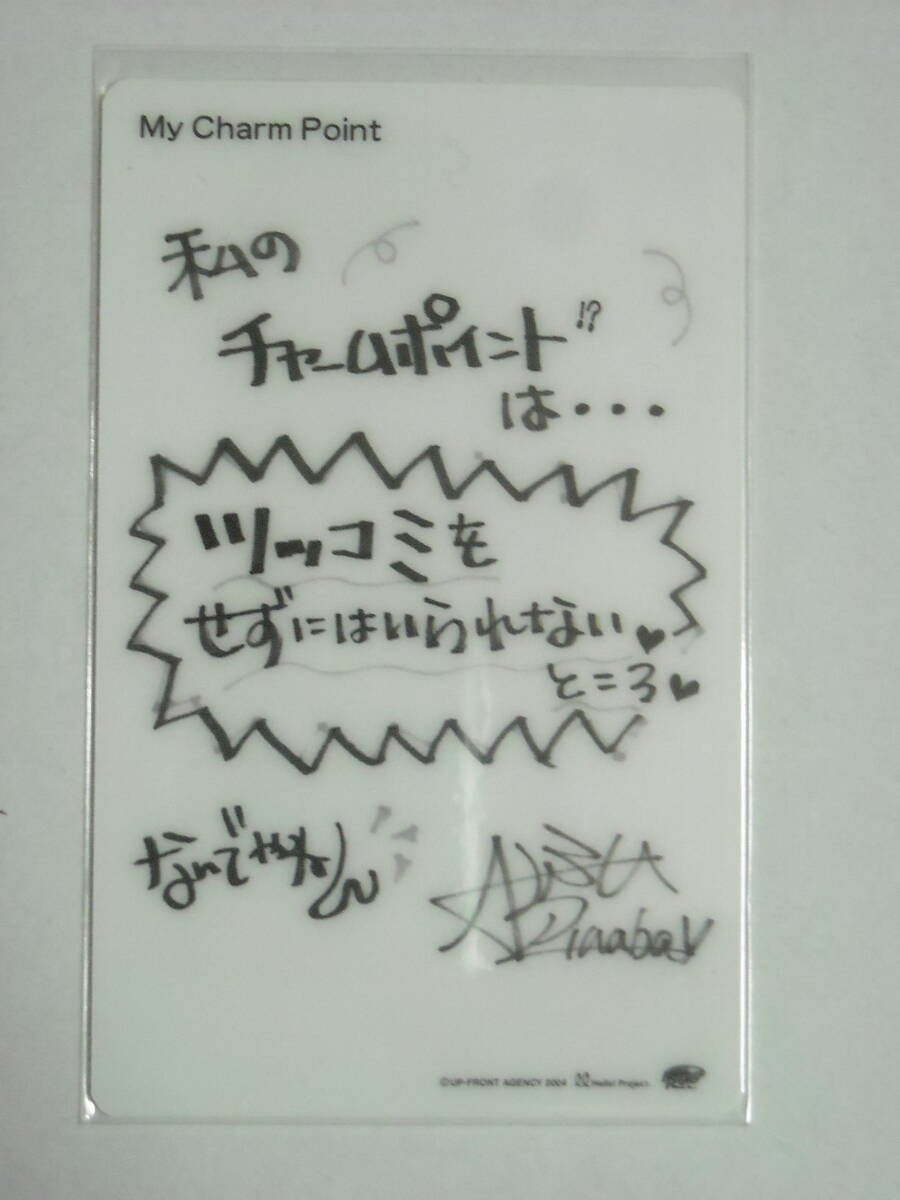 My Charm Point
私の
チャームポイント!?
は・・・
ツッコミを
せずにはいられない♥
ところ♥
なんでやねん
©UP-FRONT AGENCY 2004 Hello! Project